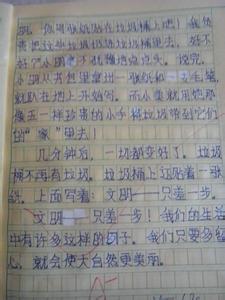 明，你用张纸贴在垃圾桶上吧！我负
责把这些垃圾扔进垃圾桶里去，好不
好？”小明毫不犹豫地点点头。说完，
小明从书包里拿出一张纸和一支毛笔
就趴在地上开始写。而小美就用她那
像玉一样珍贵的小手将垃圾带到它们
的“家”里去！
几分钟后，一切都变好了。垃圾
桶不再有垃圾。垃圾桶上还贴着一张
纸。上面写着：文明——只差一步。
文明——只差一步！我们的生活
中有许多这样的例子。我们只要多留
心，就会使大自然更美丽。